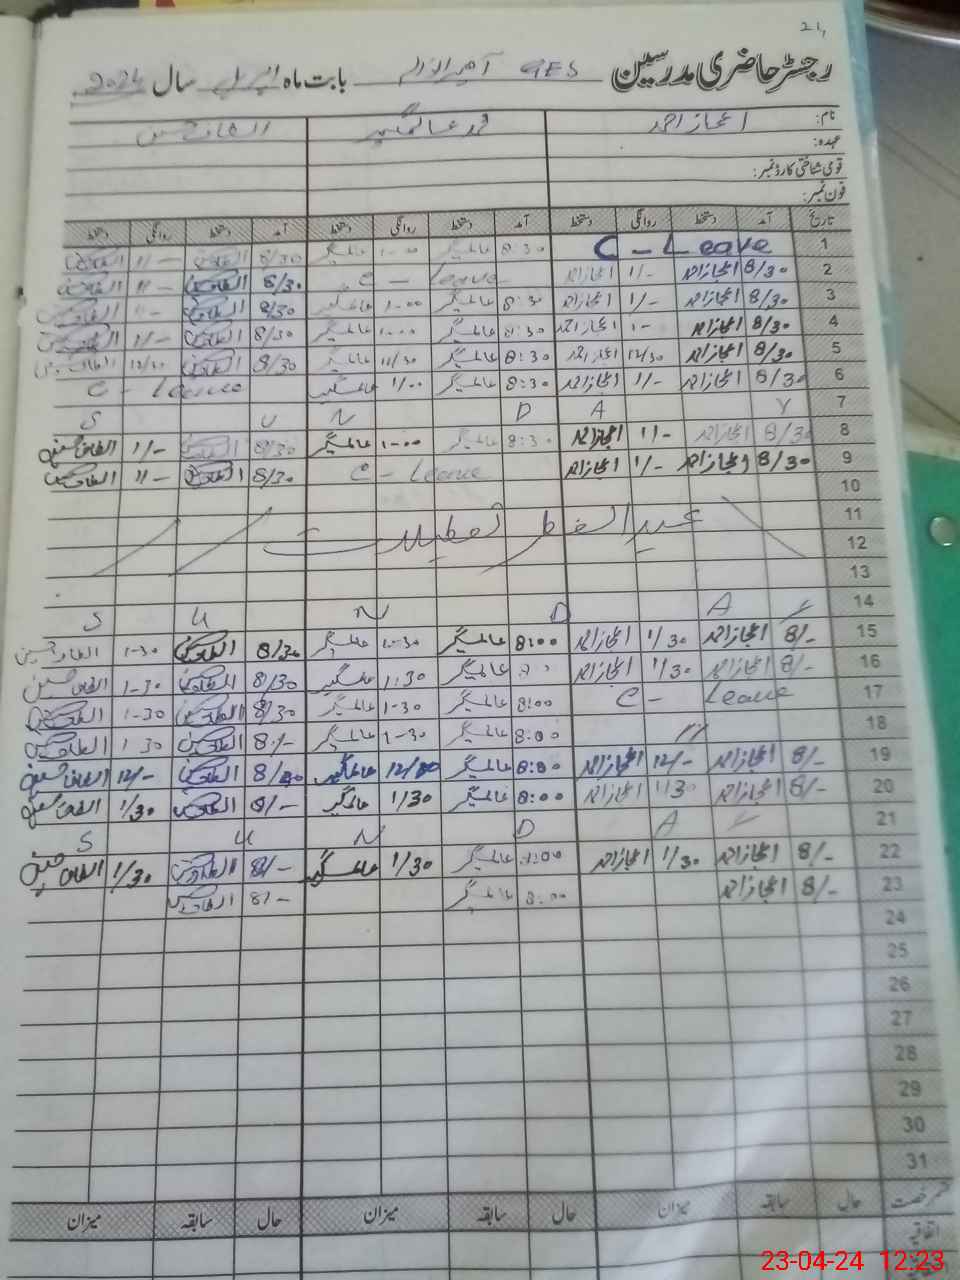 21,
رجسٹر حاضری مدرسین GES بابت ماہ اپریل سال 2024
نام: اعجاز احمد محمد عالمگیر الطاف حسین
عہدہ:
قومی شناختی کارڈ نمبر:
فون نمبر:
تاریخ آمد دستخط روانگی دستخط آمد دستخط روانگی دستخط آمد دستخط روانگی دستخط
1 C - Leave 8:30 عالمگیر 1-00 عالمگیر 8/30 الطاف حسین 1/-
2 8/30 اعجاز احمد 1/- اعجاز احمد C - Leave 8/30 الطاف حسین 1/-
3 8/30 اعجاز احمد 1/- اعجاز احمد 8:30 عالمگیر 1-00 عالمگیر 8/30 الطاف حسین
4 8/30 اعجاز احمد 1- اعجاز احمد 8:30 عالمگیر 1-00 عالمگیر 8/30 الطاف حسین 1/-
5 8/30 اعجاز احمد 12/30 اعجاز احمد 8:30 عالمگیر عالمگیر 8/30 الطاف حسین 12/30 الطاف حسین
6 8/30 اعجاز احمد 1/- اعجاز احمد 8:30 عالمگیر 1/00 عالمگیر C - Leave
7 S U N D A Y
8 8/30 اعجاز احمد 1/- اعجاز احمد 8:30 عالمگیر 1-00 عالمگیر 8/30 الطاف حسین 1/- الطاف حسین
9 8/30 اعجاز احمد 1/- اعجاز احمد C - Leave 8/30 الطاف حسین 1/- الطاف حسین
10
11 عید الفطر تعطیلات
12
13
14 S U N D A Y
15 8/- اعجاز احمد 1/30 اعجاز احمد 8:00 عالمگیر 1-30 عالمگیر 8/30 الطاف حسین 1-30 الطاف حسین
16 8/- اعجاز احمد 1/30 اعجاز احمد عالمگیر 1:30 عالمگیر 8/30 الطاف حسین 1-30 الطاف حسین
17 C - Leave 8:00 عالمگیر 1-30 عالمگیر 8/30 الطاف حسین 1-30 الطاف حسین
18 // 8:00 عالمگیر 1-30 عالمگیر 8:/- الطاف حسین 1 30 الطاف حسین
19 8/- اعجاز احمد 12/- اعجاز احمد 8:00 عالمگیر 12/00 عالمگیر الطاف حسین 12/- الطاف حسین
20 8/- اعجاز احمد 1/30 اعجاز احمد 8:00 عالمگیر 1/30 عالمگیر 8/- الطاف حسین 1/30 الطاف حسین
21 S U N D A Y
22 8/- اعجاز احمد 1/30 اعجاز احمد 8:00 عالمگیر 1/30 عالمگیر 8/- الطاف حسین 1/30 الطاف حسین
23 8/- اعجاز احمد 8:00 عالمگیر 8/- الطاف حسین
24
25
26
27
28
29
30
31
رخصت حال سابقہ میزان حال سابقہ میزان حال سابقہ میزان
اتفاقیہ
23-04-24 12:23